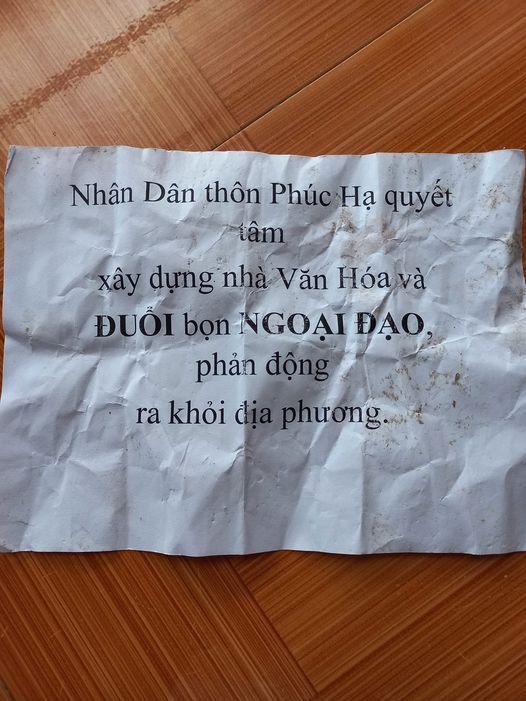 Nhân Dân thôn Phúc Hạ quyết
tâm
xây dựng nhà Văn Hóa và
ĐUỔI bọn NGOẠI ĐẠO,
phản động
ra khỏi địa phương.